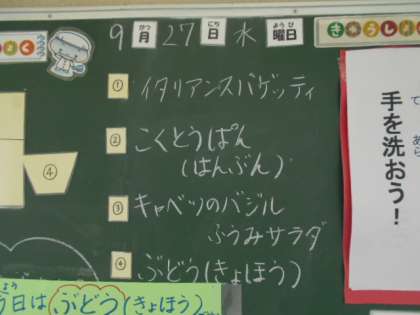 9月27日 水 曜日
① イタリアンスパゲッティ
② こくとうぱん
(はんぶん)
③ キャベツのバジル
ふうみサラダ
④ ぶどう(きょほう)
④
手を洗おう！
今日は ぶどう(きょほう)
きゅうしょ